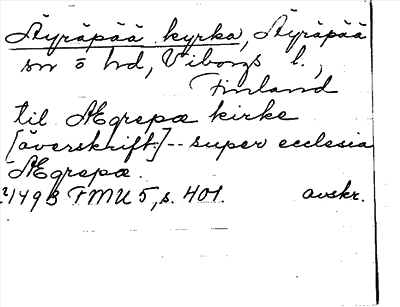 Äyräpää kyrka, Äyräpää
sn o hd, Viborgs l.,
Finland
til Ægrepæ kirke
[överskrift] -- super ecclesia
Ægrepæ.
?1493 FMU 5, s. 401. avskr.